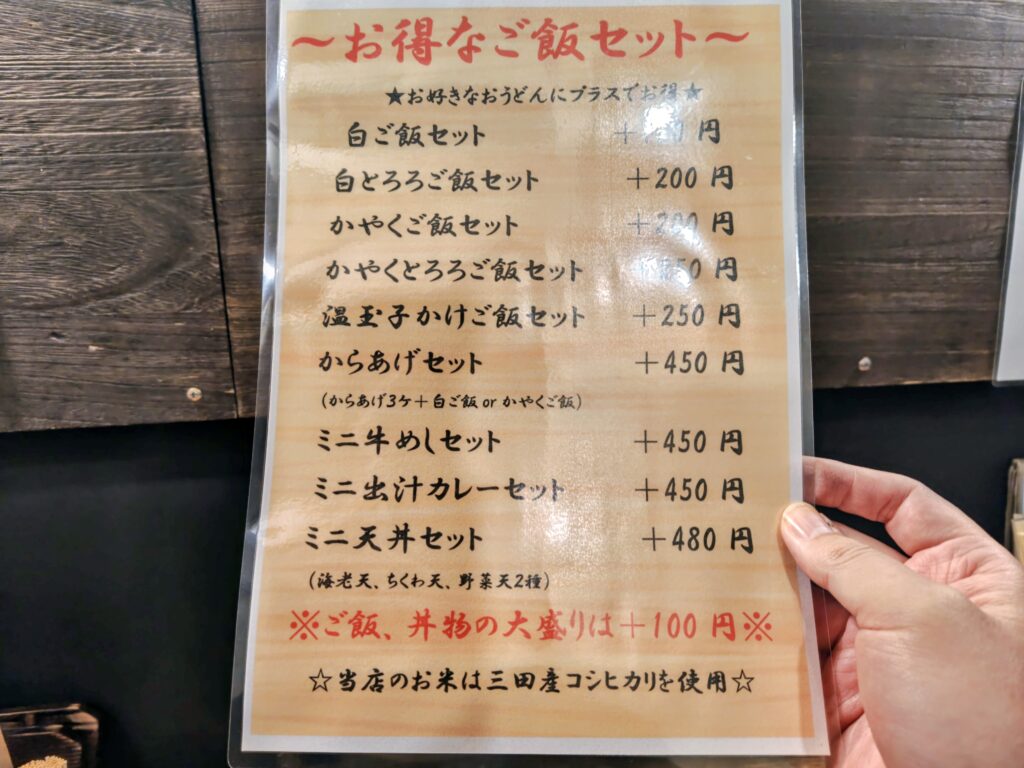 ～お得なご飯セット～
★お好きなおうどんにプラスでお得★
白ご飯セット 円
白とろろご飯セット ＋200 円
かやくご飯セット ＋200 円
かやくとろろご飯セット 円
温玉子かけご飯セット ＋250 円
からあげセット ＋450 円
（からあげ3ケ＋白ご飯 or かやくご飯）
ミニ牛めしセット ＋450 円
ミニ出汁カレーセット ＋450 円
ミニ天丼セット ＋480 円
（海老天、ちくわ天、野菜天2種）
※ご飯、丼物の大盛りは＋100 円※
☆当店のお米は三田産コシヒカリを使用☆